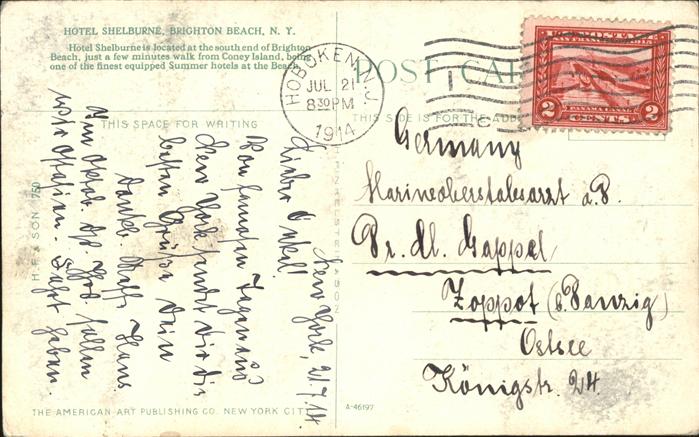 HOTEL SHELBURNE, BRIGHTON BEACH, N. Y.
Hotel Shelburne is located at the south end of Brighton
Beach, just a few minutes walk from Coney Island, being
one of the finest equipped Summer hotels at the Beach.
POST CAR
THIS SPACE FOR WRITING
THIS SIDE IS FOR THE ADD
HOBOKEN, N.J.
JUL 21
830PM
1914
U.S. POSTAGE
PANAMA CANAL
2 CENTS 2
Germany
Marineoberstabsarzt a.D.
Dr. Al. Gappel
Zoppot (b. Danzig)
Ostsee
Königstr. 24.
New York, 21.7.14.
Lieber Onkel!
Von
New York sendet Dir die
besten Grüße Dein
dankb. Neffe Hans
H. F. & SON 750
THE AMERICAN ART PUBLISHING CO. NEW YORK CITY
A-46197